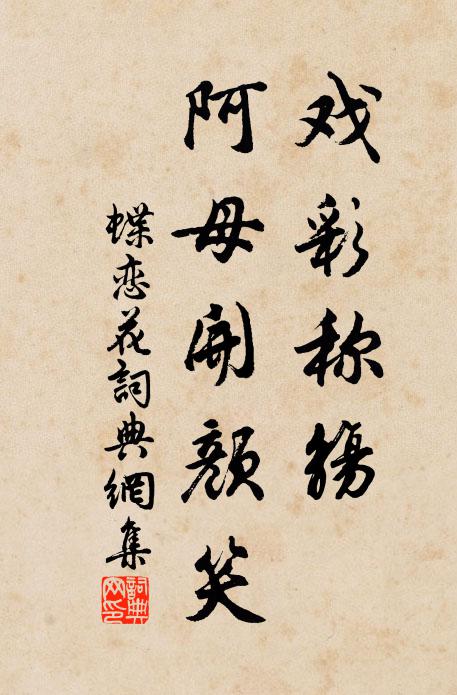 戏彩称觞
阿母开颜笑
蝶恋花詞典網集
詞典网印